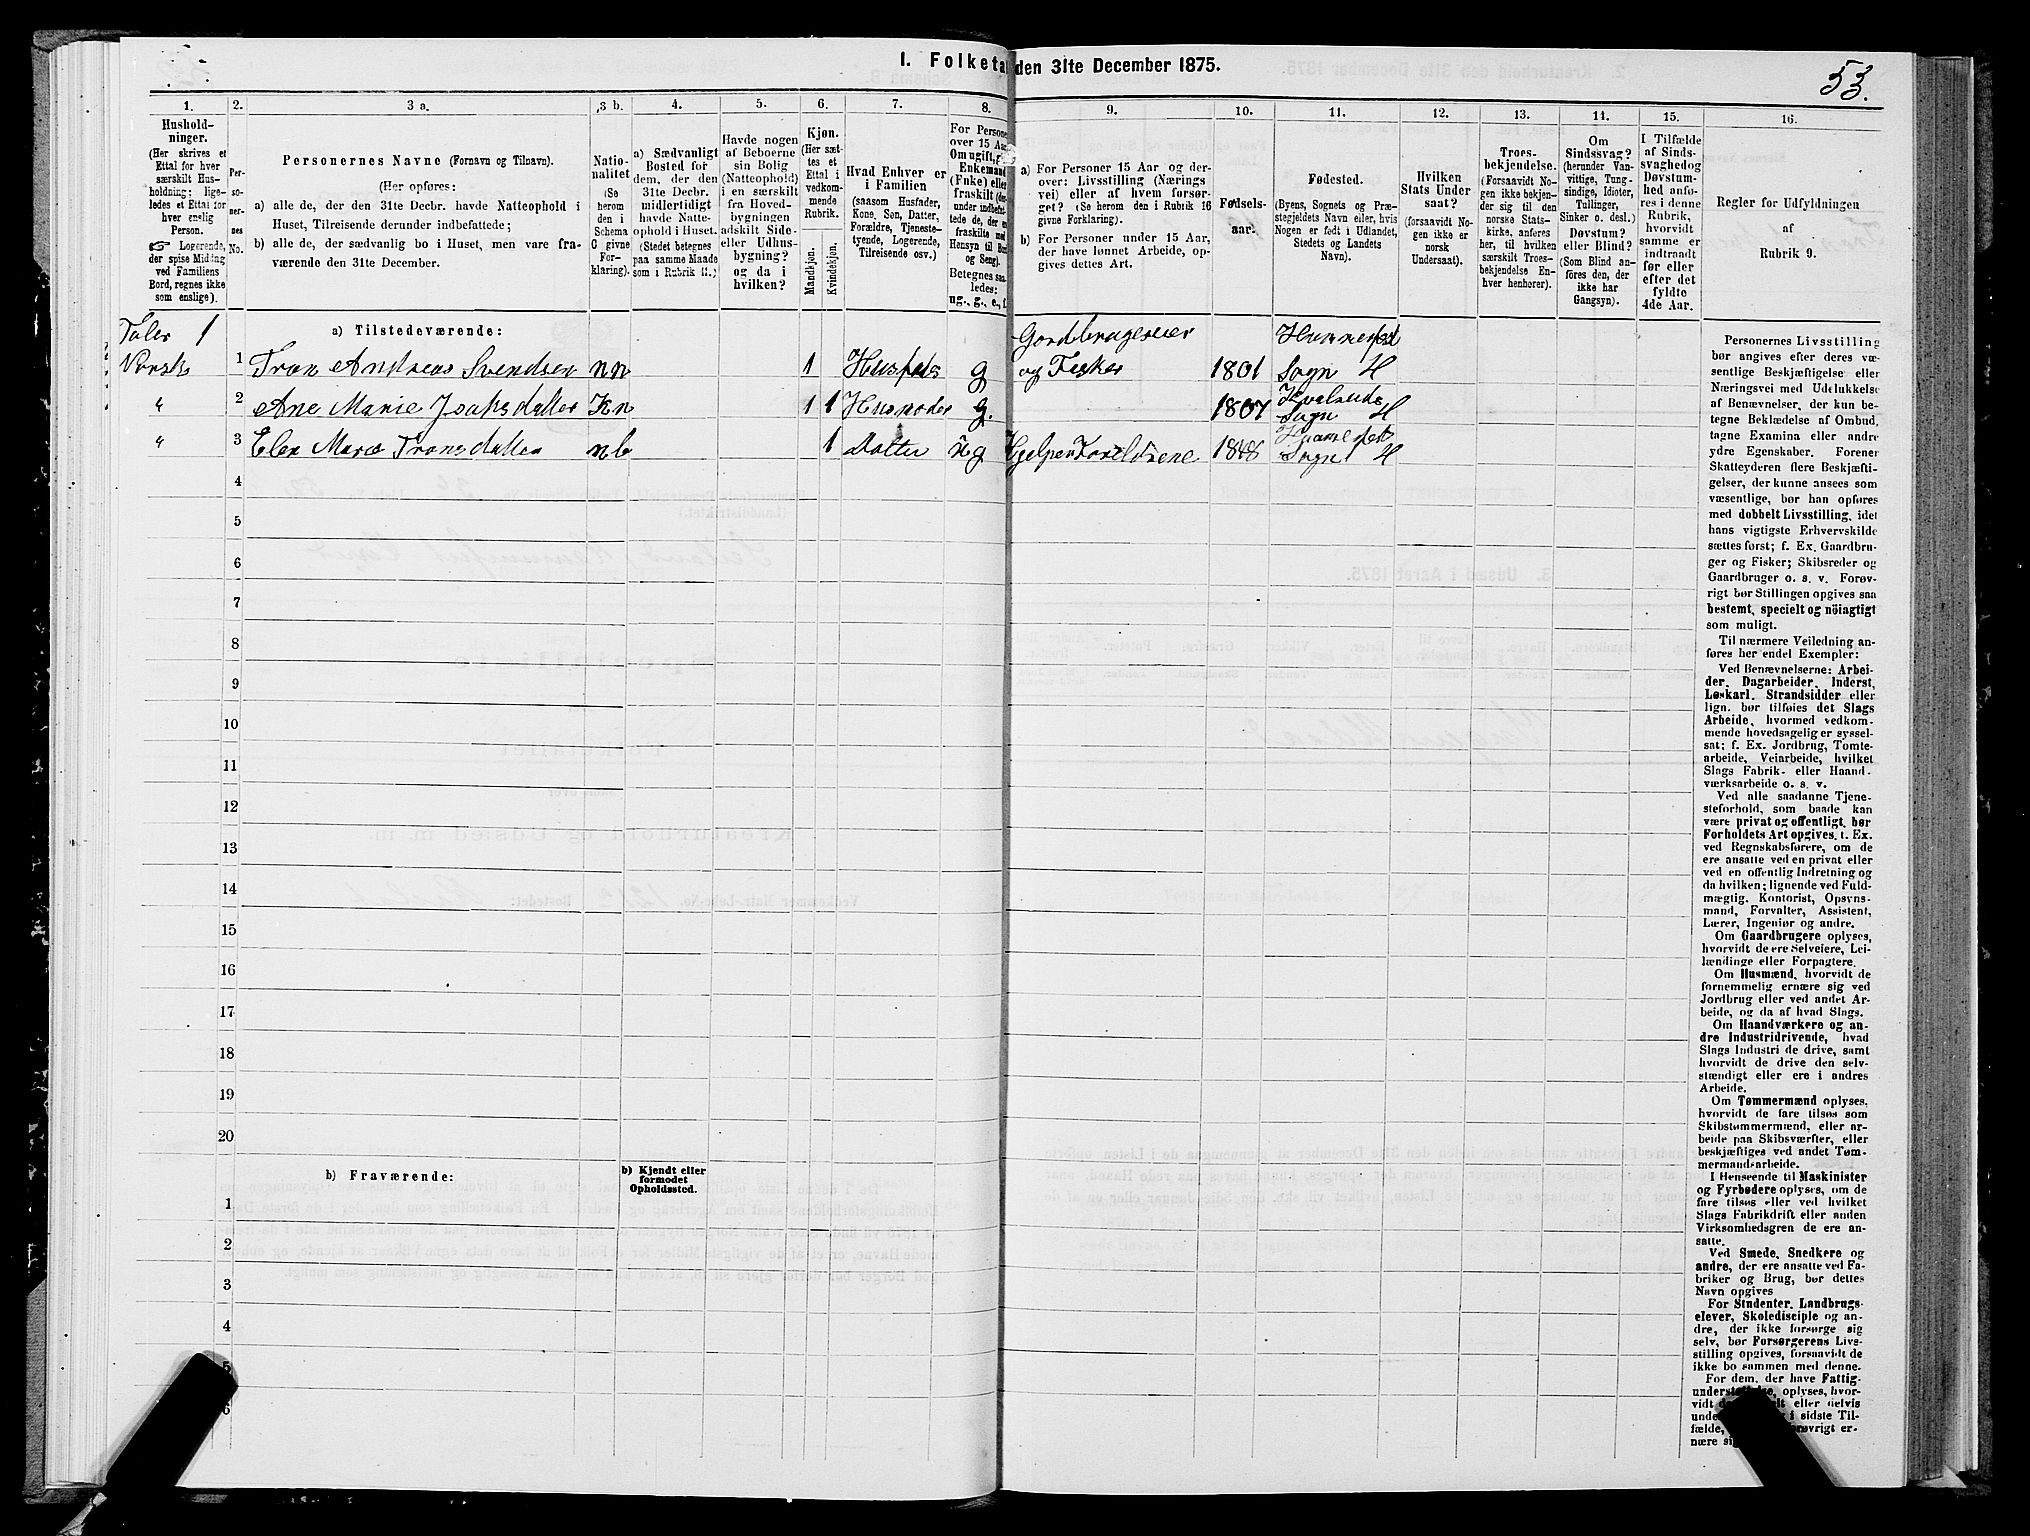 I. Folketal den 31te December 1875.
53.
1.
2.
3 a.
3 b.
4.
5.
6.
7.
8.
9.
10.
11.
12.
13.
14.
15.
16.
Hushold-
ninger.
(Her skrives et
Ettal for hver
særskilt Hus-
holdning; lige-
ledes et Ettal for
hver enslig
Person.
☞ Logerende,
der spise Middag
ved Familiens
Bord, regnes ikke
som enslige).
Per-
so-
ner-
nes
No.
Personernes Navne (Fornavn og Tilnavn).
(Her opføres:
a) alle de, der den 31te Decbr. havde Natteophold i
Huset, Tilreisende derunder indbefattede;
b) alle de, der sædvanlig bo i Huset, men vare fra-
værende den 31te December.
Natio-
nalitet
(Se
herom
den i
Schema
C givne
For-
klaring).
a) Sædvanligt
Bosted for
dem, der den
31te Decbr.
midlertidigt
havde Natte-
ophold i Huset.
(Stedet betegnes
paa samme Maade
som i Rubrik 11.)
Havde nogen
af Beboerne
sin Bolig
(Natteophold)
i en særskilt
fra Hoved-
bygningen
adskilt Side-
eller Udhus-
bygning?
og da i
hvilken?
Kjøn.
(Her sæt-
tes et
Ettal i
vedkom-
mende
Rubrik.
Mandkjøn.
Kvindekjøn.
Hvad Enhver er
i Familien
(saasom Husfader,
Kone, Søn, Datter,
Forældre, Tjeneste-
tyende, Logerende,
Tilreisende osv.)
For Persone
over 15 Aar
Om ugift, g
Enkemand
(Enke) eller
fraskilt (der-
under indbefat-
tede de, der e
fraskilte m
Hensyn til Bo
og Seng).
Betegnes saa-
ledes:
ug., g., e., f.
a) For Personer 15 Aar og der-
over: Livsstilling (Nærings
vei) eller af hvem forsør-
get? (Se herom den i Rubrik 16
givne Forklaring).
b) For Personer under 15 Aar,
der have lønnet Arbeide, op-
gives dettes Art.
Fødsels-
aar.
Fødested.
(Byens, Sognets og Præ-
stegjeldets Navn eller, hvis
Nogen er født i Udlandet,
Stedets og Landets
Navn).
Hvilken
Stats Under
saat?
(forsaavidt No-
gen ikke er
norsk
Undersaat).
Troes-
bekjendelse.
(Forsaavidt No-
gen ikke bekjen-
der sig til den
norske Stats-
kirke, anføres
her, til hvilken
særskilt Troes-
bekjendelse En-
hver henhører).
Om
Sindssvag?
(herunder Van-
vittige, Tung-
sindige, Idioter,
Sinker o. desl.)
Døvstum?
eller Blind?
(Som Blind an-
føres den, der
ikke har
Gangsyn).
I Tilfælde
af Sinds-
svaghed og
Døvstum-
hed anfø-
res i denne
Rubrik,
hvorvidt
samme er
indtraadt
før eller
efter det
fyldte
4de Aar.
Regler for Udfyldningen
af
Rubrik 9.
a) Tilstedeværende:
Taler 1
Norsk 1 Tron Andreas Svendsen nn 1 Husfads g Gordbrugeseier og Fisker 1801 Hammerfest Sogn H
" 2 Ane Marie Isaksdatter Kn 1 1 Husmoder g. 1807 Kvalsunds Sogn H
" 3 Elen Marie Tronsdatter nb 1 Datter ug Hjelper Foreldrene 1848 Hammerfest Sogn H
4
5
6
7
8
9
10
11
12
13
14
15
16
17
18
19
20
b) Fraværende:
b) Kjendt eller
formodet
Opholdssted.
1
2
3
4
5
6
Personernes Livsstilling
bør angives efter deres væ-
sentlige Beskjæftigelse eller
Næringsvei med Udelukkelse
af Benævnelser, der kun be-
tegne Beklædelse af Ombud,
tagne Examina eller andre
ydre Egenskaber. Forener
Skatteyderen flere Beskjæfti-
gelser, der kunne ansees som
væsentlige, bør han opføres
med dobbelt Livsstilling, idet
hans vigtigste Erhvervskilde
sættes først; f. Ex. Gaardbru-
ger og Fisker; Skibsreder og
Gaardbruger o. s. v. Forøv-
rigt bør Stillingen opgives saa
bestemt, specielt og nöiagtigt
som muligt.
Til nærmere Veiledning an-
føres her endel Exempler:
Ved Benævnelserne: Arbei-
der, Dagarbeider, Inderst,
Løskarl, Strandsidder eller
lign. bør tilføies det Slags
Arbeide, hvormed vedkom-
mende hovedsagelig er syssel-
sat; f. Ex. Jordbrug, Tomte-
arbeide, Veiarbeide, hvilket
Slags Fabrik- eller Haand-
værksarbeide o. s. v.
Ved alle saadanne Tjene-
steforhold, som baade kan
være privat og offentligt, bør
Forholdets Art opgives, t. Ex.
ved Regnskabsførere, om de
ere ansatte ved en privat eller
ved en offentlig Indretning og
da hvilken; lignende ved Fuld-
mægtig, Kontorist, Opsyns-
mand, Forvalter, Assistent,
Lærer, Ingeniør og andre.
Om Gaardbrugere oplyses,
hvorvidt de ere Selveiere, Lei-
lændinge eller Forpagtere.
Om Husmænd, hvorvidt de
fornemmelig ernære sig ved
Jordbrug eller ved andet Ar-
beide, og da af hvad Slags.
Om Haandværkere og an-
dre Industridrivende, hvad
Slags Industri de drive, samt
hvorvidt de drive den selv-
stændigt eller ere i andres
Arbeide.
Om Tømmermænd oplyses,
hvorvidt de fare tilsøs som
Skibstømmermænd, eller ar-
beide paa Skibsværfter, eller
beskjæftiges ved andet Tøm-
mermandsarbeide.
I Henseende til Maskinister
og Fyrbødere oplyses, om de
fare tilsøs eller ved hvilket
Slags Fabrikdrift eller anden
Virksomhedsgren de ere an-
satte.
Ved Smede, Snedkere og
andre, der ere ansatte ved Fa-
briker og Brug, bør dettes
Navn opgives
For Studenter, Landbrugs-
elever, Skoledisciple og an-
dre, der ikke forsørge sig
selv, bør Forsørgerens Livs-
stilling opgives, forsaavidt de
ikke bo sammen med denne.
For dem, der have Fattig-
understøttelse, oplyses, hvor-
vidt de helt eller delvis
unde i sidste Til-
fælde, forøvrigt er-
nære sig